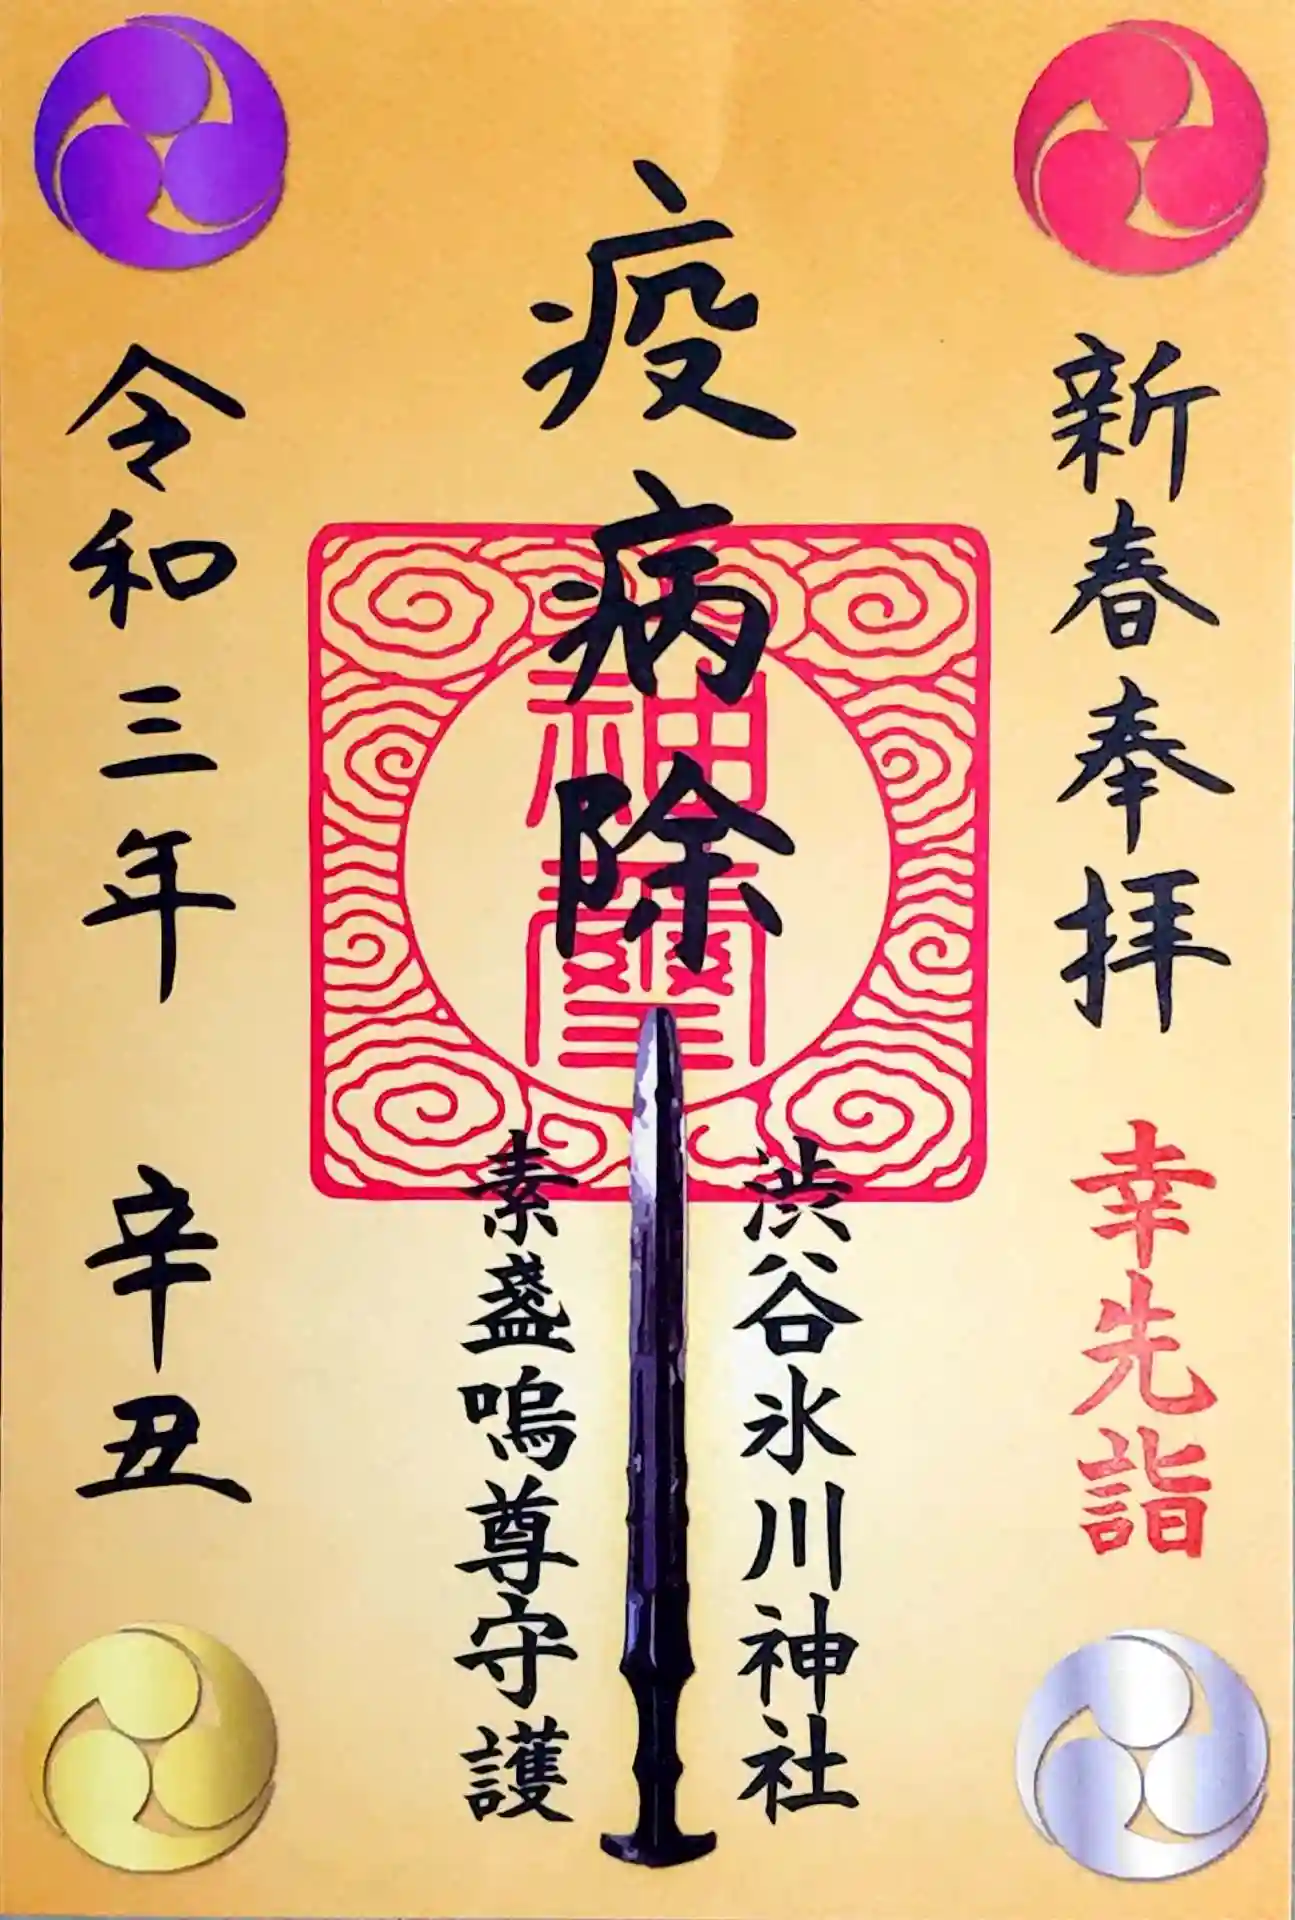 新春奉拝 幸先詣
疫病除
神璽
渋谷氷川神社
素盞嗚尊守護
令和三年 辛丑